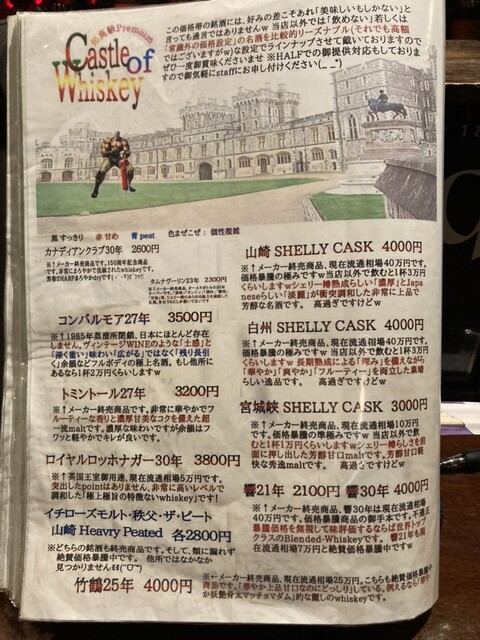 最高級Premium
Castle of
Whiskey
この価格帯の銘酒には、好みの差こそあれ「美味しいもしかない」と
言っても過言ではありませんｗ当店以外では「飲めない」若しくは
「常識外の価格設定」の名酒を比較的リーズナブル(それでも高額
ではございますがｗ)な設定でラインナップさせて戴いておりますので
ぜひ一度御賞味くださいませ ※HALFでの御提供対応もしておりま
すので御気軽にstaffにお申し付けください(_ _*)
黒 すっきり 赤 甘め 青 peat 色まぜこぜ： 個性複雑
カナディアンクラブ30年 2600円
※↑メーカー終売商品です。150周年記念商品
です。非常にまろやかで洗練されたwhiskeyです。
タムナヴーリン23年 2300円
コンバルモア27年 3500円
※↑1985年蒸溜所閉鎖、日本にほとんど存在
しません。ヴィンテージWINEのような「土感」と
「深く重い」味わい「広がる」ではなく「残り長引
く」余韻などフルボディの極上名酒。もし他所に
あるなら1杯2万円くらいしますｗ
トミントール27年 3200円
※↑メーカー終売商品です。非常に華やかでフ
ルーティーな香りと濃厚甘美なコクを備えた超
一流maltです。濃厚な味わいですが余韻はフ
ワッと軽やかでキレが良いです。
ロイヤルロッホナガー30年 3800円
※↑英国王室御用達、現在流通相場5万円です。
突出したpointはありません、非常に高いレベルで
調和した「極上極旨の特徴ないwhiskey」です!
イチローズモルト・秩父・ザ・ピート
山崎 Heavry Peated 各2800円
※どちらの銘酒も終売商品です。そして、類に漏れず
絶賛価格暴騰中です。 他所ではなかなか
見つかりません
竹鶴25年 4000円
※←メーカー終売商品、現在流通相場25万円。こちらも絶賛価格暴騰中
商品です。「華やか上品甘口なのにどっしり」している。例えるなら「華や
か妖艶骨太マッチョマダム」的な麗しのwhiskeyです。
山崎 SHELLY CASK 4000円
※↑メーカー終売商品、現在流通相場40万円です。
価格暴騰の極みですｗ当店以外で飲むと1杯3万円
くらいしますｗシェリー樽熟成らしい「濃厚」とJapa
neseらしい「淡麗」が衝突調和した非常に上品で
芳醇な名酒です。 高過ぎですけどｗ
白州 SHELLY CASK 4000円
※↑メーカー終売商品、現在流通相場40万円です。
価格暴騰の極みですｗ当店以外で飲むと1杯3万円
くらいしますｗ長期熟成による「深み」を備えながら
「華やか」「爽やか」「フルーティー」を両立した素晴
らしい逸品です。 高過ぎですけどｗ
宮城峡 SHELLY CASK 3000円
※↑メーカー終売商品、現在流通相場10万円
です。価格暴騰の準極みですｗ当店以外で飲
むと1杯1万円くらいしますｗシェリー樽らしさを前
面に押し出した芳醇甘口maltです。芳醇甘口軽
快な秀逸maltです。 高過ぎですけどｗ
響21年 2100円 響30年 4000円
※↑メーカー終売商品、響30年は現在流通相場
40万円です。価格暴騰商品の御手本です。不適正
暴騰価格を無視して味評価するならば世界トップ
クラスのBlended-Whiskeyです。響21年も現
在流通相場7万円と絶賛価格暴騰中ですｗ